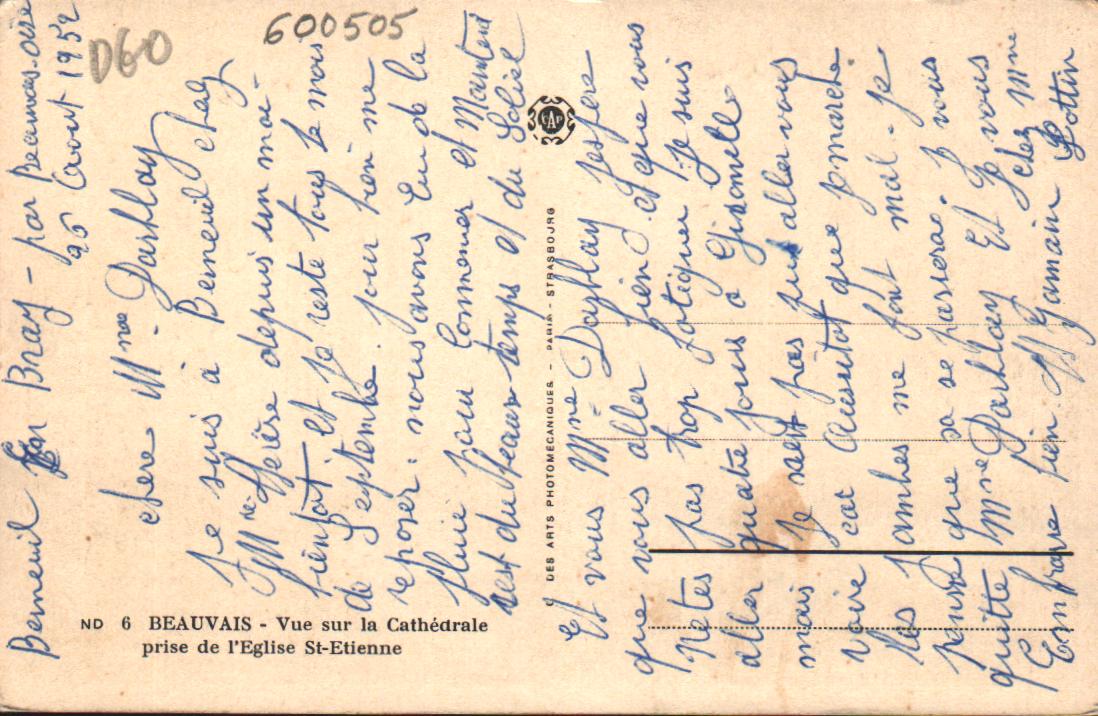 600505
D60
Berneuil en Bray - par Beauvais. oise
25 Aout 1952
chere Mme Dashlay
Je suis à Berneuil chez
Mme ffrère depuis un moi
bientot et je reste tous le mois
de Septembre pour bien me
reposer. nous avons Eu de la
pluie pour Commencer et Maintent
sest du Beaux temps et du Soleil
Et vous Mme Dashlay jespere
que vous aller bien et que vous
netes pas trop fatiguer. Je suis
aller quatre jours a
mais Je sest pas quel aller vous
voire car Aussitot que jmarche
Les Jambes me font mal. Je
pense que sa se passeras. J vous
quitte Mme Dashlay Et Je vous
Embrasse bien Germain chez Mme
Cottin
ND 6 BEAUVAIS - Vue sur la Cathédrale
prise de l'Eglise St-Etienne
CAP
DES ARTS PHOTOMÉCANIQUES - PARIS - STRASBOURG